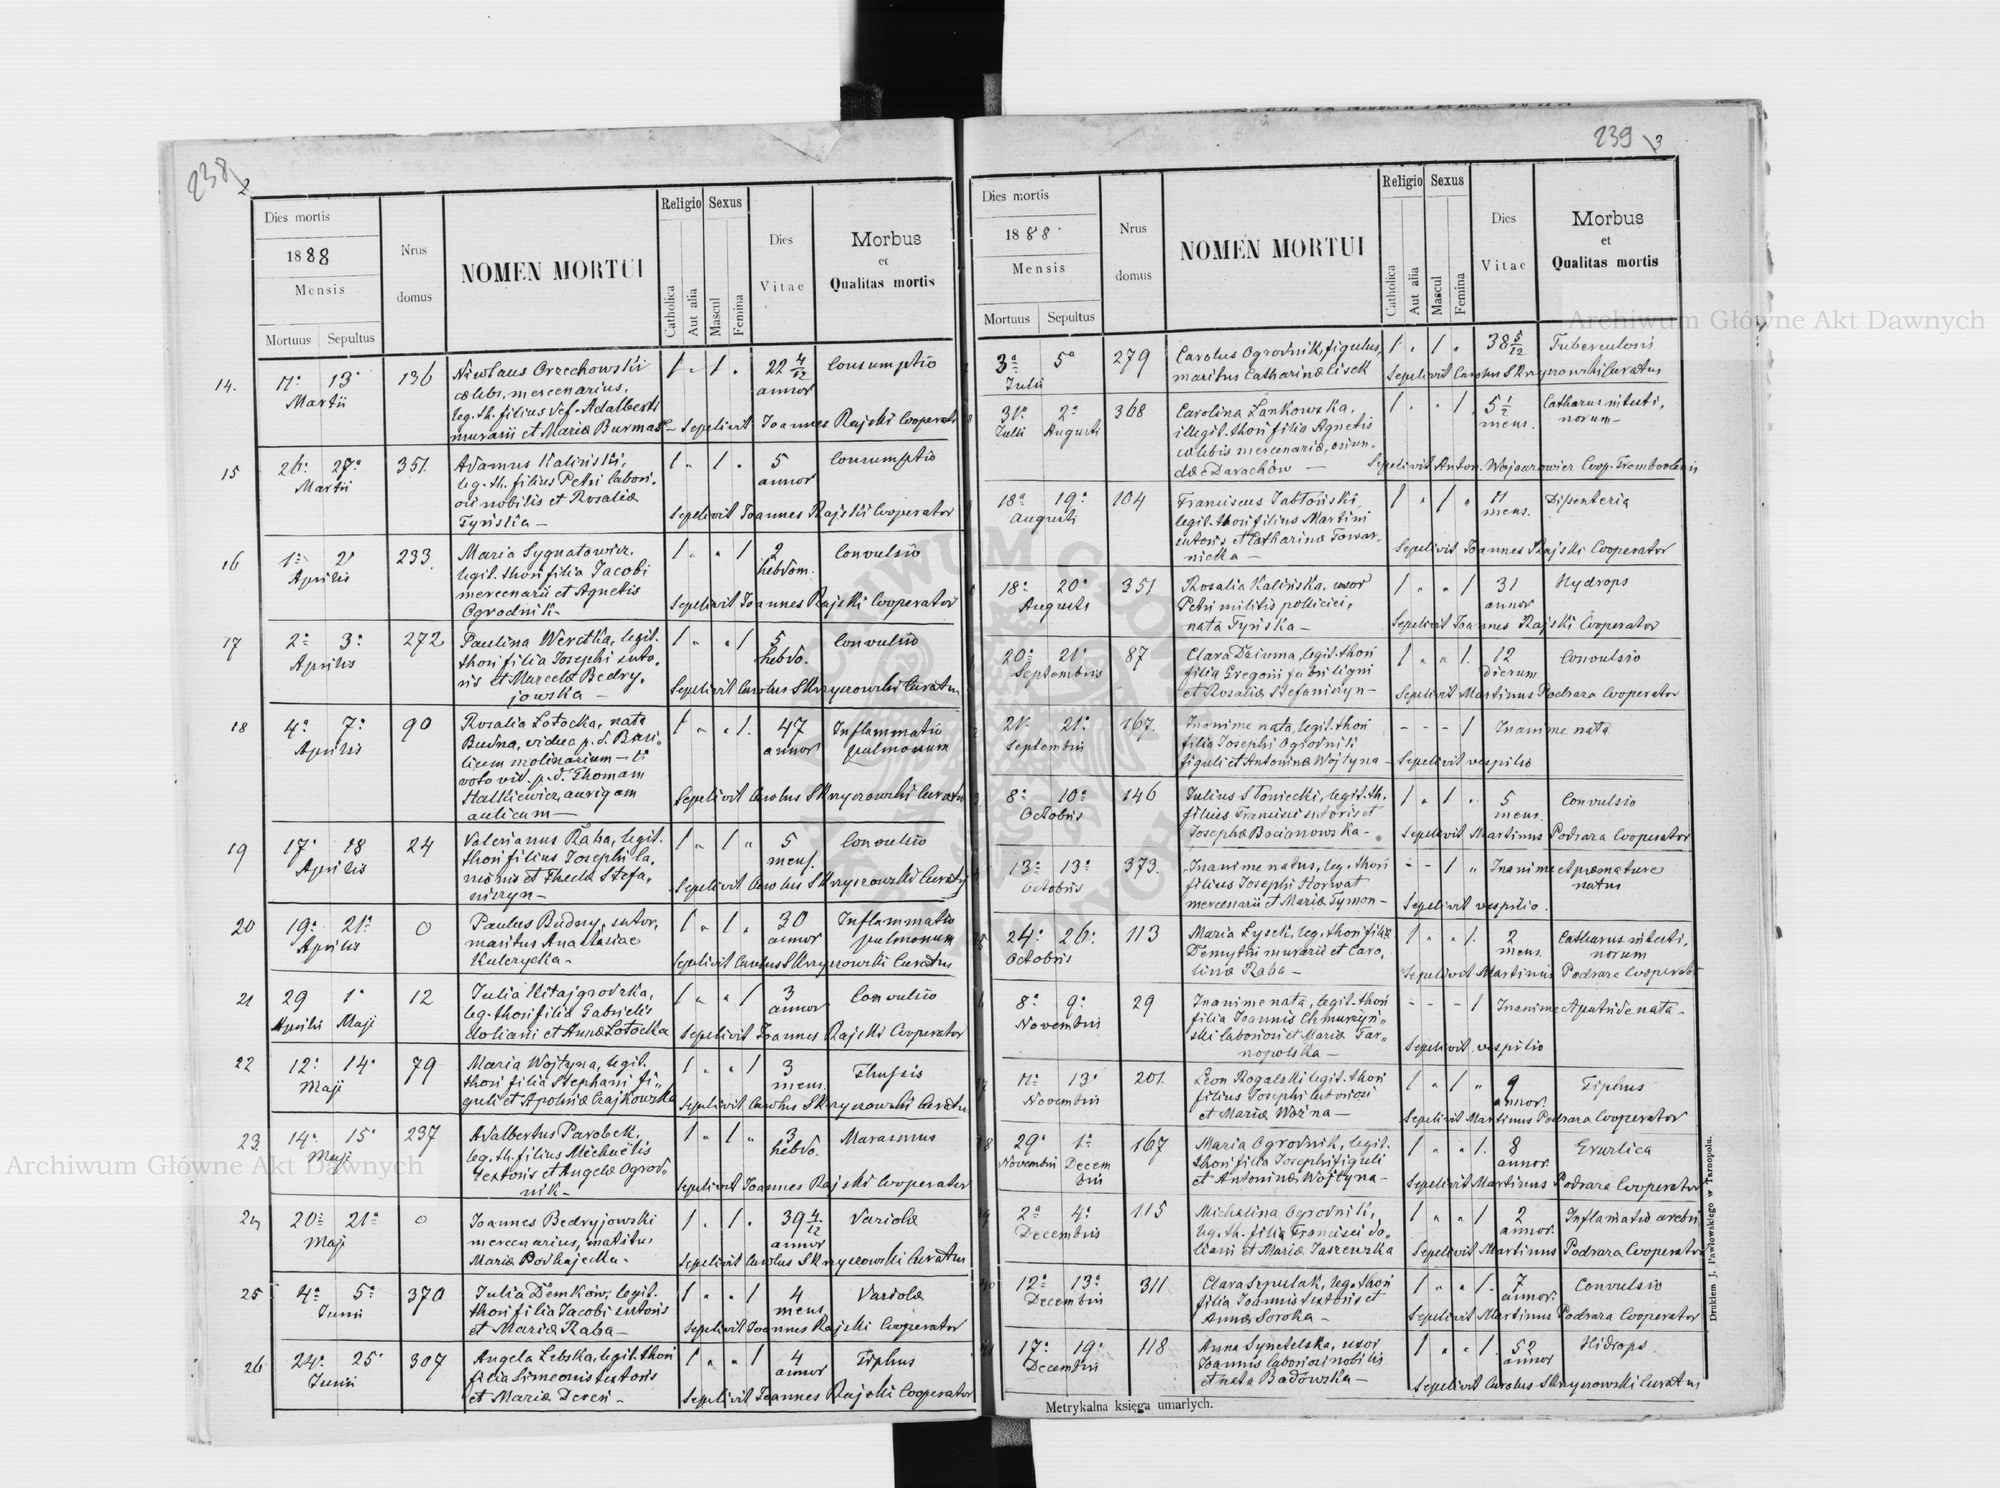 238
2
Dies mortis
1888
Mensis
Mortuus Sepultus
Nrus domus
NOMEN MORTUI
Religio
Catholica
Aut alia
Sexus
Mascul
Femina
Dies Vitae
Morbus
et
Qualitas mortis
14. 11a 13a 136 Nicolaus Orzechowski 1 " 1 " 22 4/12 Consumptio
Martii caelebs, mercenarius, annor
leg. th. filius def. Adalberti
murarii et Mariae Burmas Sepelivit Joannes Rajski Cooperator
15 26a 27a 351. Adamus Kaliński, 1 " 1 " 5 Consumptio
Martii leg. th. filius Petri labori, annor
osi nobilis et Rosaliae
Tyriska — Sepelivit Joannes Rajski Cooperator
16 1a 2 233. Maria Sygnatowicz, 1 " " 1 2 Convulsio
Aprilis legit. thori filia Jacobi hebdom.
mercenarii et Agnetis
Ogrodnik — Sepelivit Joannes Rajski Cooperator
17 2a 3a 272 Paulina Werstka, legit. 1 " " 1 5 Convulsio
Aprilis thori filia Josephi suto, hebdo.
ris et Marcelae Bedry,
jowska — Sepelivit Carolus Skrzyszowski Curatus
18 4a 7a 90 Rosalia Łotocka, nata 1 " " 1. 47 Inflammatio
Aprilis Budna, vidua p. d. Basi, annor pulmonum
lium molinarium —
voto vid. p. d. Thomam
Halkiewicz, aurigam
aulicum — Sepelivit Carolus Skrzyszowski Curatus
19 17a 18 24 Valerianus Raba, legit. 1 " 1 " 5 Convulsio
Aprilis thori filius Josephi la, mens.
nionis et Theclae Stefa,
niszyn — Sepelivit Carolus Skrzyszowski Curatus
20 19a 21a 0 Paulus Budny, sutor, 1 " 1 " 30 Inflammatio
Aprilis maritus Anastasiae annor pulmonum
Kulczycka — Sepelivit Carolus Skrzyszowski Curatus
21 29 1a 12 Julia Kitajgrodzka, 1 " " 1 3 Convulsio
Aprilis Maji leg. thori filia Gabrielis annor
doliarii et Annae Łotocka Sepelivit Joannes Rajski Cooperator
22 12a 14a 79 Maria Wojtyna, legit. 1 " " 1 3
Maji thori filia Stephani fi, mens.
guli et Apoloniae Czajkowska Sepelivit Carolus Skrzyszowski Curatus
23. 14a 15a 237 Adalbertus Parobek, 1 " 1 " 3 Marasmus
Maji leg. th. filius Michaëlis hebdo.
textoris et Angelae Ogrod,
nik — Sepelivit Joannes Rajski Cooperator
24 20a 21a 0 Joannes Bedryjowski 1 " 1 " 39 4/12 Variolae
Maji mercenarius, maritus annor
Mariae Podhajecka — Sepelivit Carolus Skrzyszowski Curatus
25 4a 5a 370 Julia Demków, legit. 1 " " 1 4 Variolae
Junii thori filia Jacobi sutoris mens
et Mariae Raba — Sepelivit Joannes Rajski Cooperator
26 24a 25a 307 Angela Lebska, legit. thori 1 " " 1 4 Tiphus
Junii filia Simeonis textoris annor
et Mariae Dereń — Sepelivit Joannes Rajski Cooperator
239
3
Dies mortis
1888
Mensis
Mortuus Sepultus
Nrus domus
NOMEN MORTUI
Religio
Catholica
Aut alia
Sexus
Mascul
Femina
Dies Vitae
Morbus
et
Qualitas mortis
3a 5a 279 Carolus Ogrodnik, figulus, 1 " 1 " 38 5/12 Tuberculosis
Julii maritus Catharinae Lisek Sepelivit Carolus Skrzyszowski Curatus
31a 2a 368 Carolina Zankowska, 1 " " 1 5 1/2 Catharus intesti,
Julii Augusti illegit. thori filia Agnetis mens. norum —
caelibis mercenariae, oriun,
dae Darachów — Sepelivit Anton. Coop. Trembovlensis
18a 19a 104 Franciscus Jabłoński, 1 " 1 " 11 Dissenteria
Augusti legit. thori filius Martini mens.
sutoris et Catharinae Towar,
nicka — Sepelivit Joannes Rajski Cooperator
18a 20a 351 Rosalia Kalińska, uxor 1 " " 1 31 Hydrops
Augusti Petri militis policiei, annor
nata Tyriska — Sepelivit Joannes Rajski Cooperator
20a 21a 87 Clara Dziuma, legit. thori 1 " " 1. 12 Convulsio
Septembris filia Gregorii fabri ligni dierum
et Rosaliae Stefaniszyn — Sepelivit Martinus Podraza Cooperator
21. 21a 167. Inanime nata, legit. thori - - - 1 Inanime nata
Septembris filia Josephi Ogrodnik
figuli et Antoninae Wojtyna — Sepelivit vespilio
8a 10a 146 Julius Słoniecki, legit. th. 1 " 1 " 5 Convulsio
Octobris filius Francisci sutoris et mens.
Josephae Bocianowska — Sepelivit Martinus Podraza Cooperator
13a 13a 373. Inanime natus, leg. thori - - 1 " Inanime et praemature
Octobris filius Josephi Horwat natus
mercenarii et Mariae Tymon — Sepelivit vespilio.
24a 26a 113 Maria Lysek, leg. thori filia 1 " " 1. 2 Catharus intesti,
Octobris Demytri murarii et Caro, mens. norum
linae Raba — Sepelivit Martinus Podraza Cooperator
8a 9a 29 Inanime nata, legit. thori - - - 1 Inanime et putride nata —
Novembris filia Joannis Chmurzyń,
ski laboriosi et Mariae Tar,
nopolska — Sepelivit vespilio
11a 13a 201. Leon Rogalski legit. thori 1 " 1 " 9 Tiphus
Novembris filius Josephi annor.
et Mariae Woźna — Sepelivit Martinus Podraza Cooperator
29a 1a 167 Maria Ogrodnik, legit. 1 " " 1. 8
Novembris Decem thori filia Josephi figuli annor.
bris et Antoninae Wojtyna — Sepelivit Martinus Podraza Cooperator
2a 4a 115 Michalina Ogrodnik, 1 " " 1 2 Inflamatio
Decembris leg. th. filia Francisci do, annor.
liarii et Mariae Jaszewska Sepelivit Martinus Podraza Cooperator
12a 13a 311 Clara Szpulak, leg. thori 1 " " 1. 7 Convulsio
Decembris filia Joannis textoris et annor.
Annae Soroka — Sepelivit Martinus Podraza Cooperator
17a 19a 118 Anna Synetelska, uxor 1 " " 1. 52 Hidrops
Decembris Joannis laboriosi nobilis annor
et nata Badowska — Sepelivit Carolus Skrzyszowski Curatus
Metrykalna księga umarłych.
Drukiem J. Pawłowskiego w Tarnopolu.
Archiwum Główne Akt Dawnych
Archiwum Główne Akt Dawnych
ARCHIWUM GŁÓWNE AKT DAWNYCH